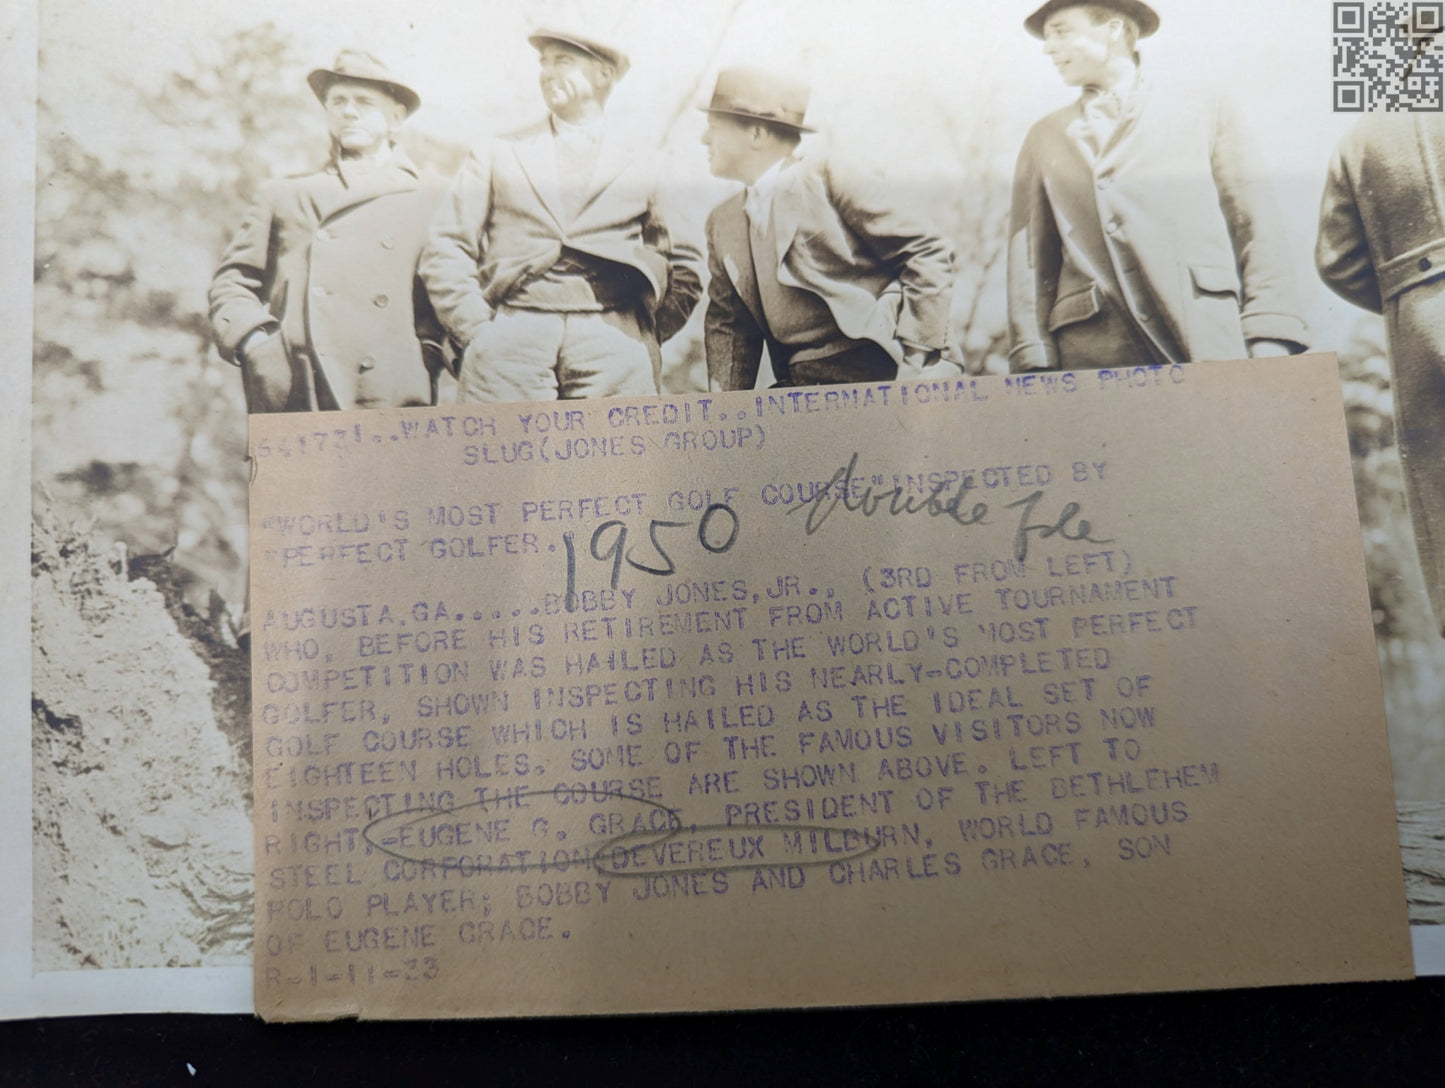 541731..WATCH YOUR CREDIT..INTERNATIONAL NEWS PHOTO
SLUG(JONES GROUP)
"WORLD'S MOST PERFECT GOLF COURSE" INSPECTED BY
"PERFECT GOLFER."
1950 double file
AUGUSTA,GA.....BOBBY JONES,JR., (3RD FROM LEFT)
WHO, BEFORE HIS RETIREMENT FROM ACTIVE TOURNAMENT
COMPETITION WAS HAILED AS THE WORLD'S MOST PERFECT
GOLFER, SHOWN INSPECTING HIS NEARLY-COMPLETED
GOLF COURSE WHICH IS HAILED AS THE IDEAL SET OF
EIGHTEEN HOLES. SOME OF THE FAMOUS VISITORS NOW
INSPECTING THE COURSE ARE SHOWN ABOVE. LEFT TO
RIGHT,-EUGENE G. GRACE, PRESIDENT OF THE BETHLEHEM
STEEL CORPORATION;DEVEREUX MILBURN, WORLD FAMOUS
POLO PLAYER; BOBBY JONES AND CHARLES GRACE, SON
OF EUGENE GRACE.
R-1-11-33